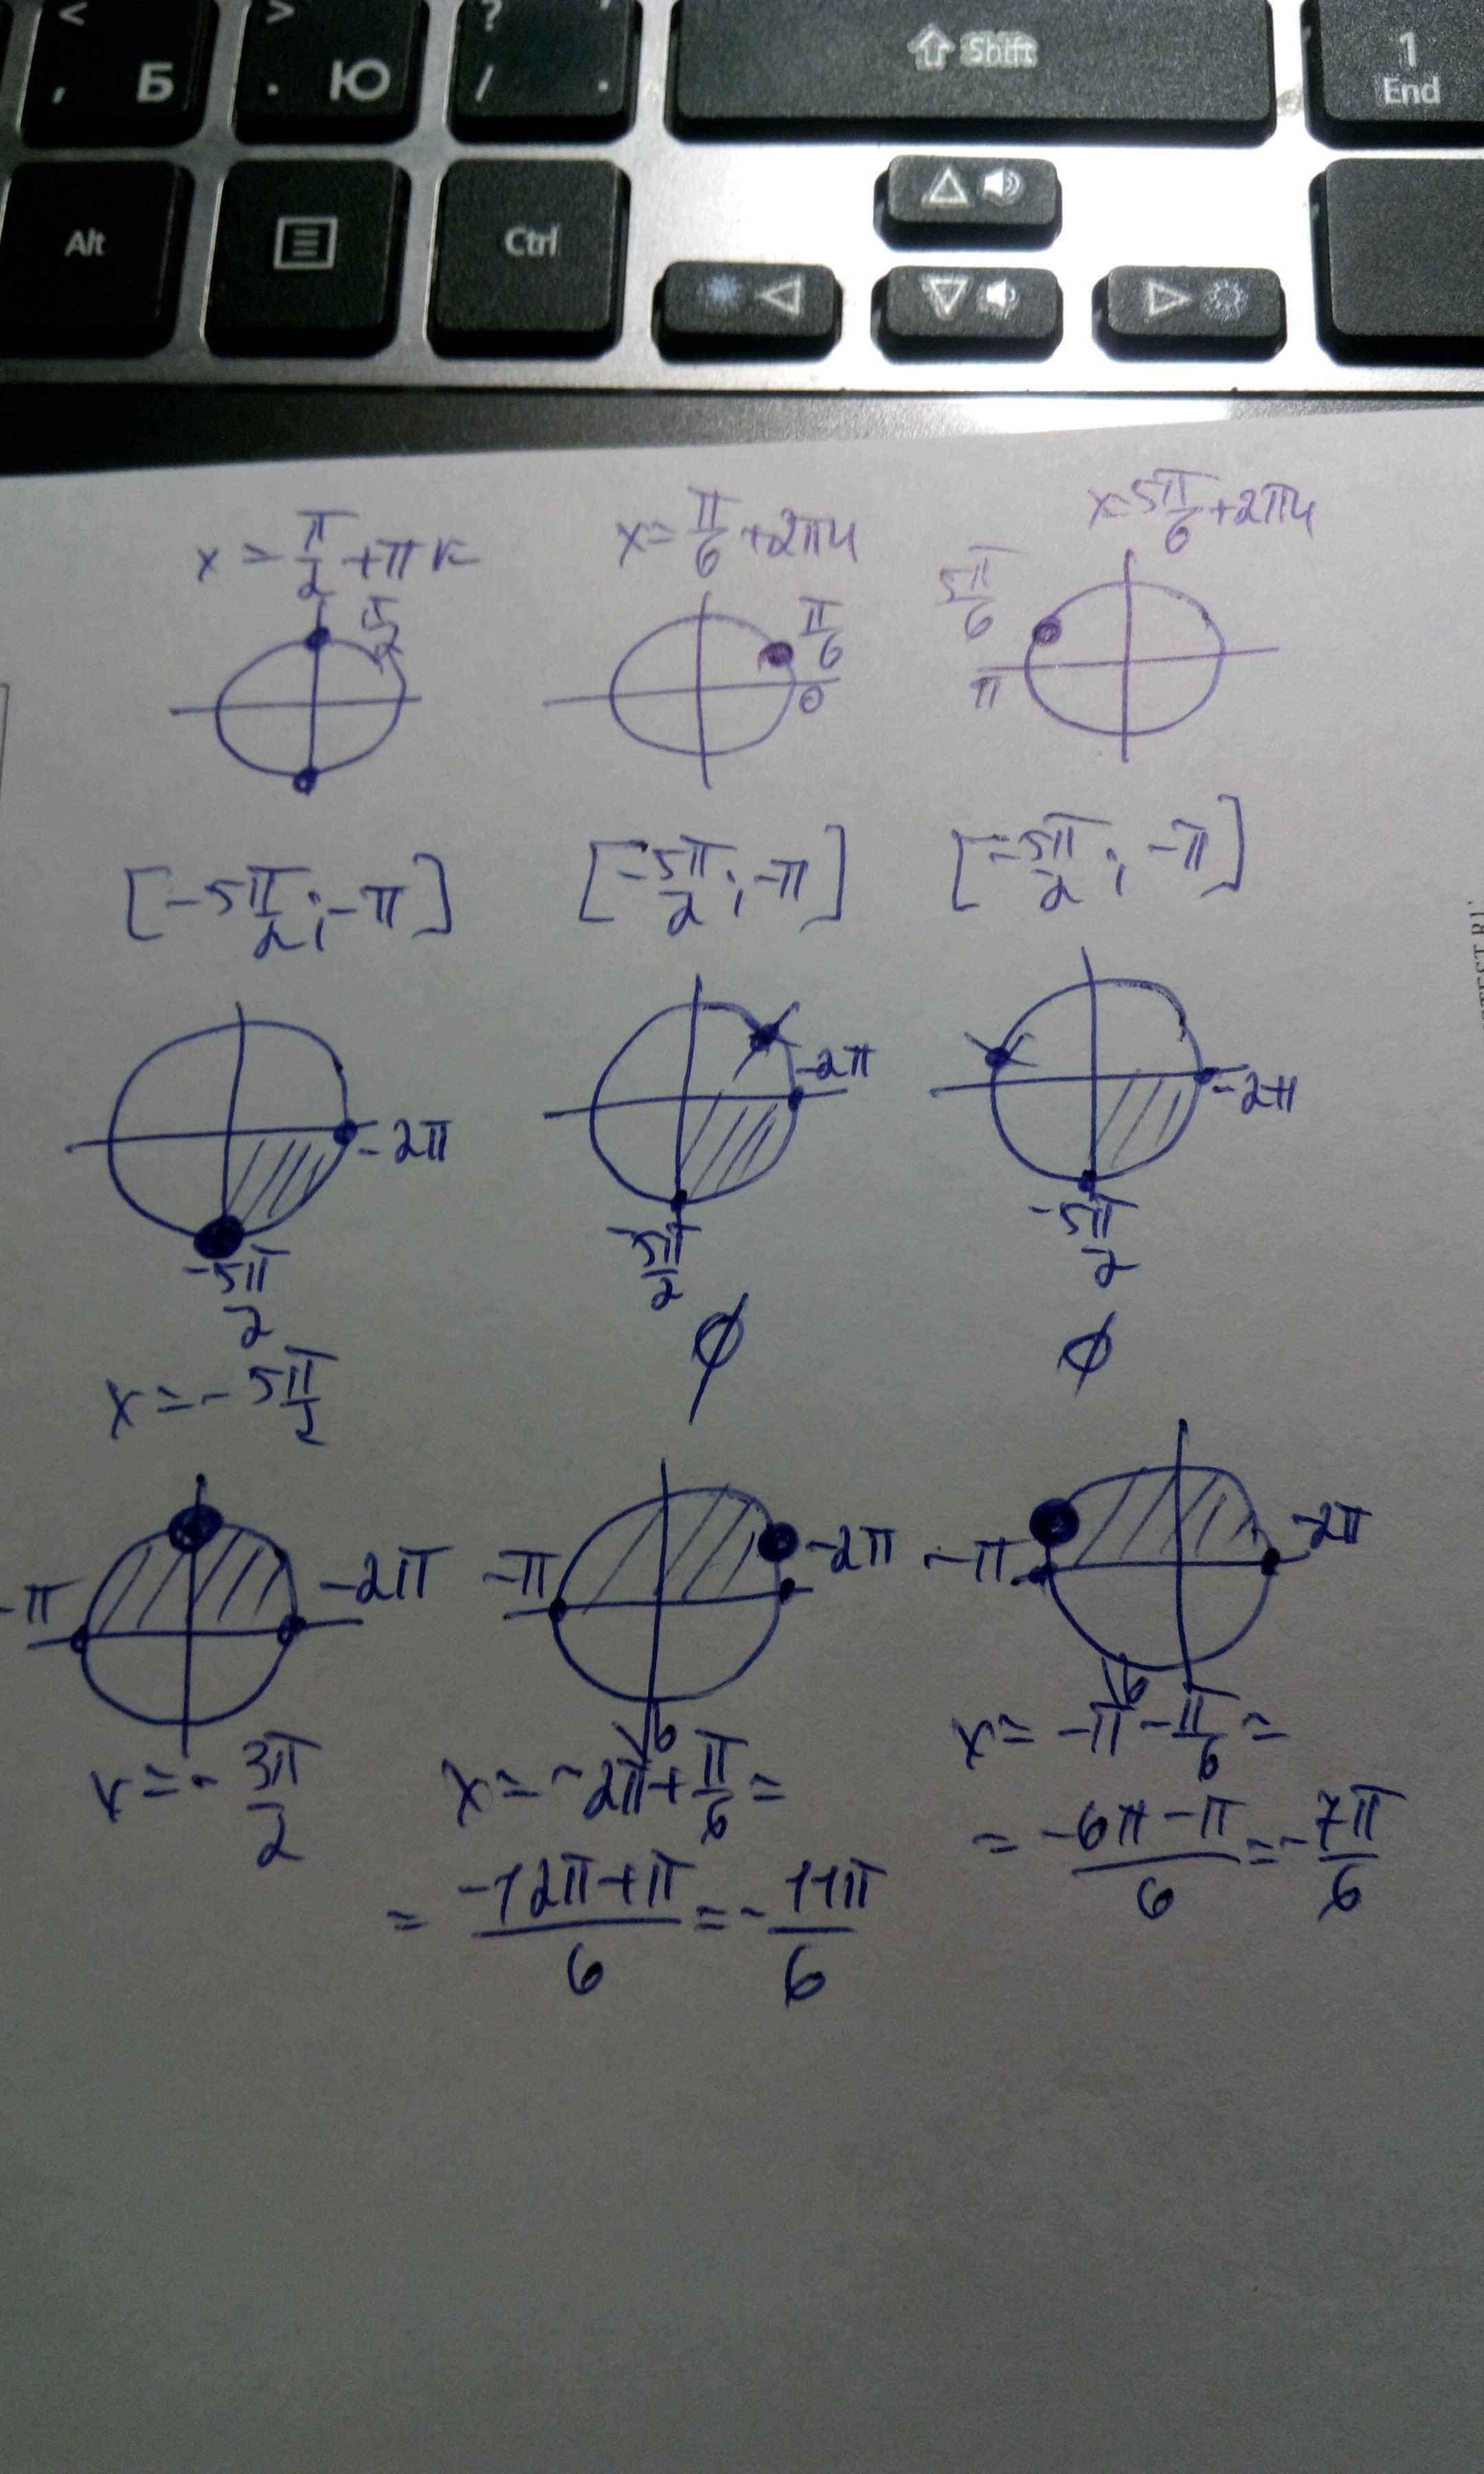 < , Б > . Ю ? / . ⇧ Shift 1 End
Alt Ctrl
x = π/2 + πк x = π/6 + 2πч x = 5π/6 + 2πч
π/2 π/6 0 5π/6 π
[-5π/2; -π] [-5π/2; -π] [-5π/2; -π]
-2π -2π -2π
-5π/2 -5π/2 -5π/2
x = -5π/2 ∅ ∅
-π -2π -π -2π -π -2π
x = -3π/2 x = -2π\6 + π/6 = x = -π\6 - π/6 =
= (-12π+π)/6 = -11π/6 = (-6π-π)/6 = -7π/6